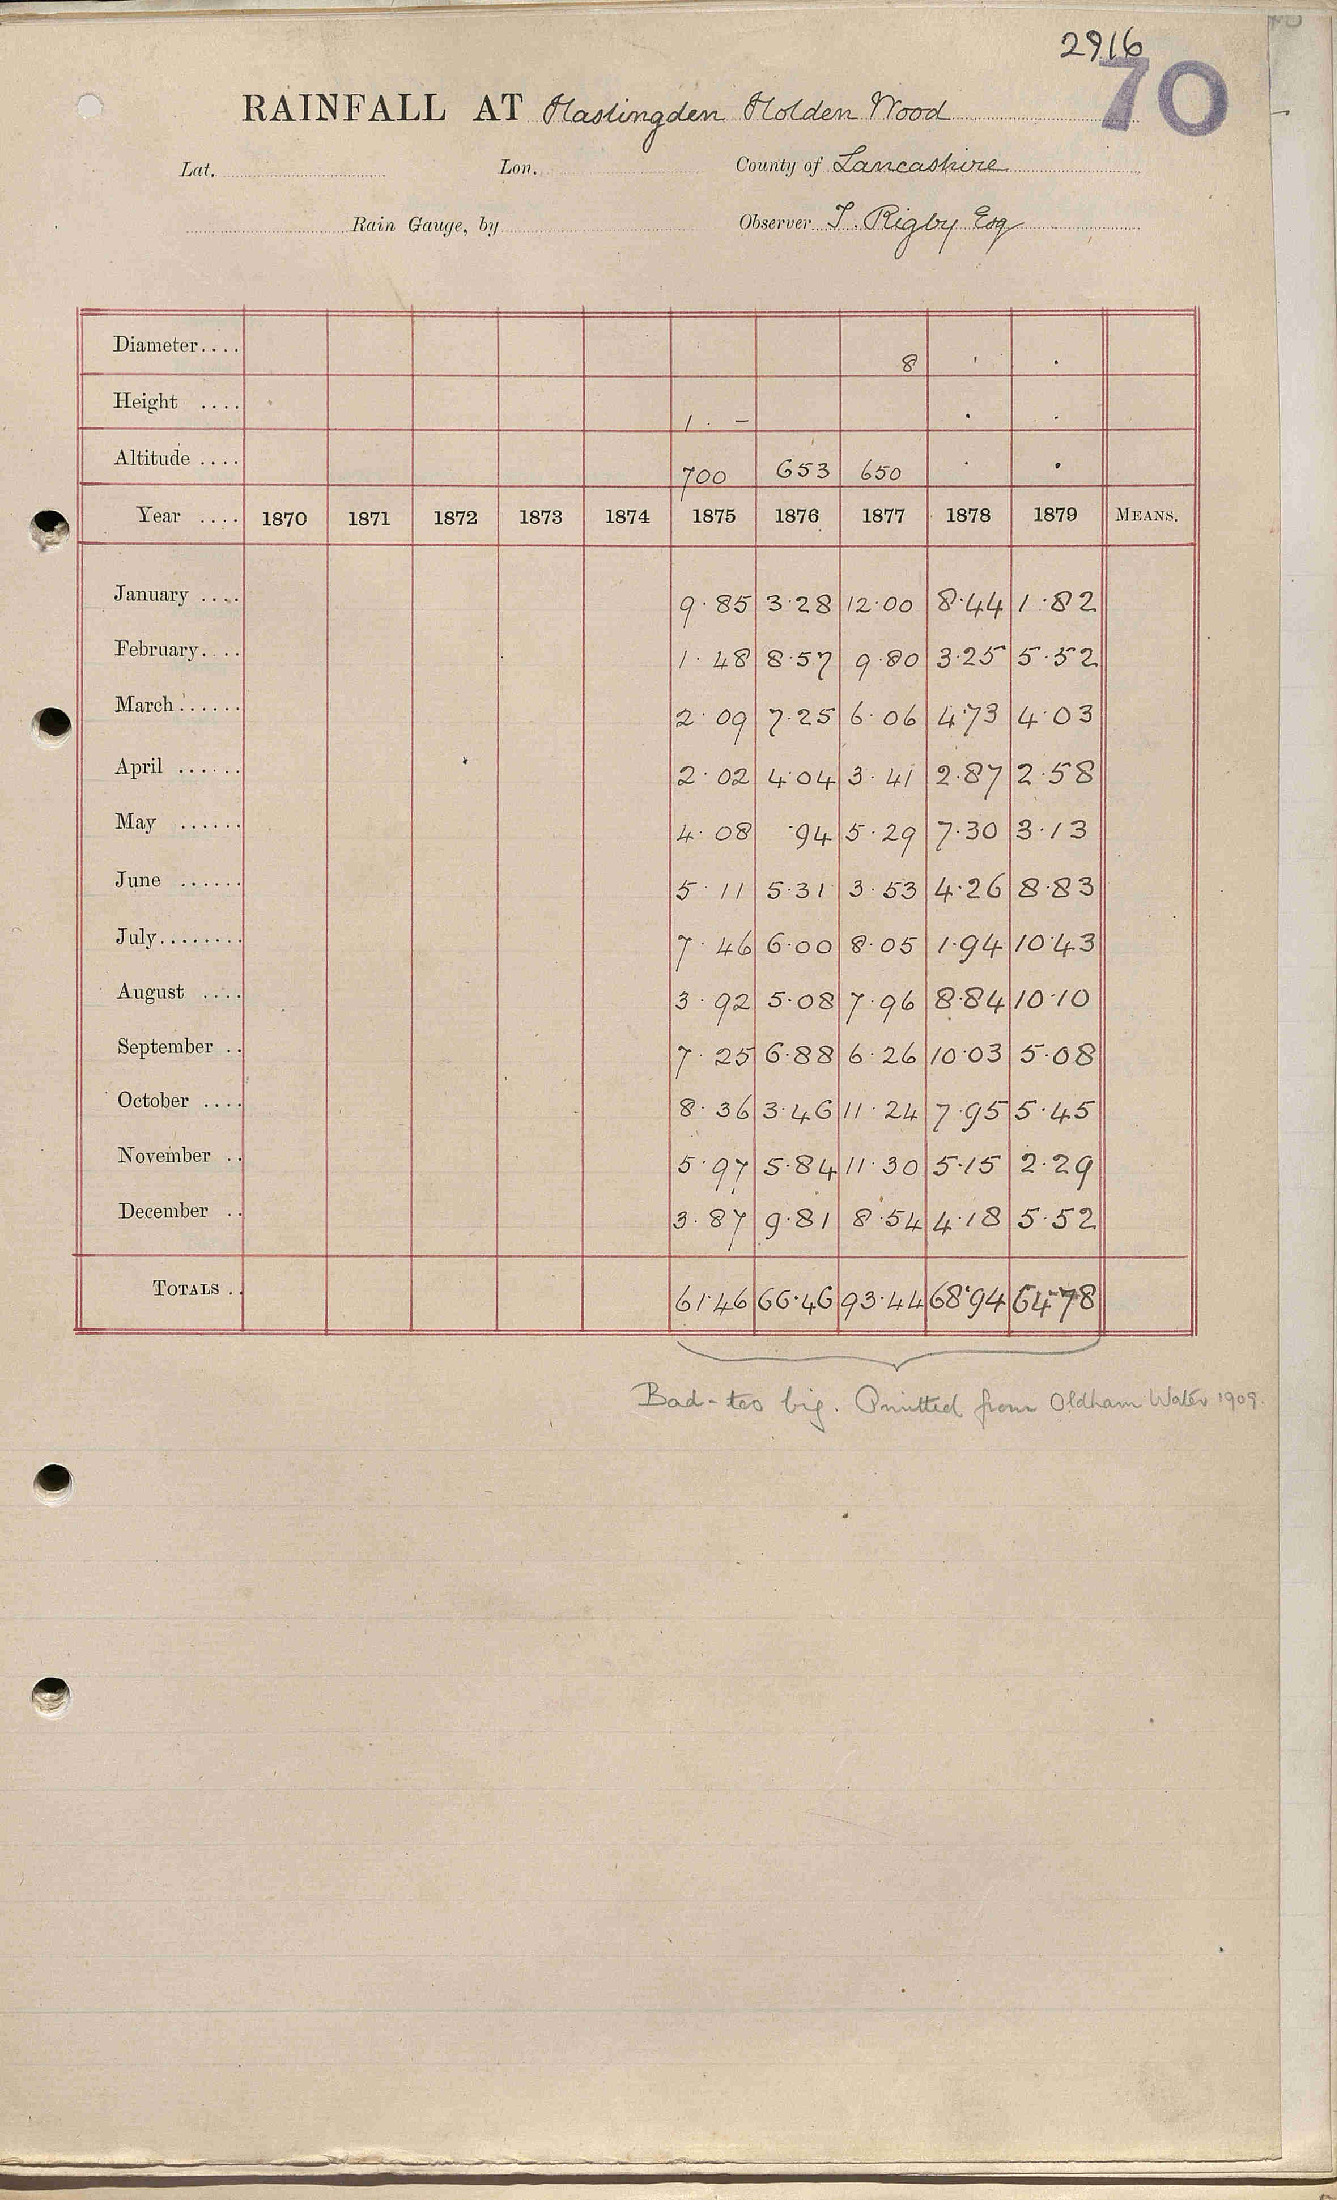 2916
70
RAINFALL AT Haslingden Holden Wood
Lat. Lon. County of Lancashire
Rain Gauge, by Observer T. Rigby Esq
Diameter.... 8 " "
Height .... 1 . - " "
Altitude .... 700 653 650 " "
Year .... 1870 1871 1872 1873 1874 1875 1876 1877 1878 1879 MEANS.
January .... 9.85 3.28 12.00 8.44 1.82
February.... 1.48 8.57 9.80 3.25 5.52
March...... 2.09 7.25 6.06 4.73 4.03
April ...... 2.02 4.04 3.41 2.87 2.58
May ...... 4.08 .94 5.29 7.30 3.13
June ...... 5.11 5.31 3.53 4.26 8.83
July........ 7.46 6.00 8.05 1.94 10.43
August .... 3.92 5.08 7.96 8.84 10.10
September .. 7.25 6.88 6.26 10.03 5.08
October .... 8.36 3.46 11.24 7.95 5.45
November .. 5.97 5.84 11.30 5.15 2.29
December .. 3.87 9.81 8.54 4.18 5.52
TOTALS .. 61.46 66.46 93.44 68.94 64.78
Bad - too big. Omitted from Oldham Water 1909.